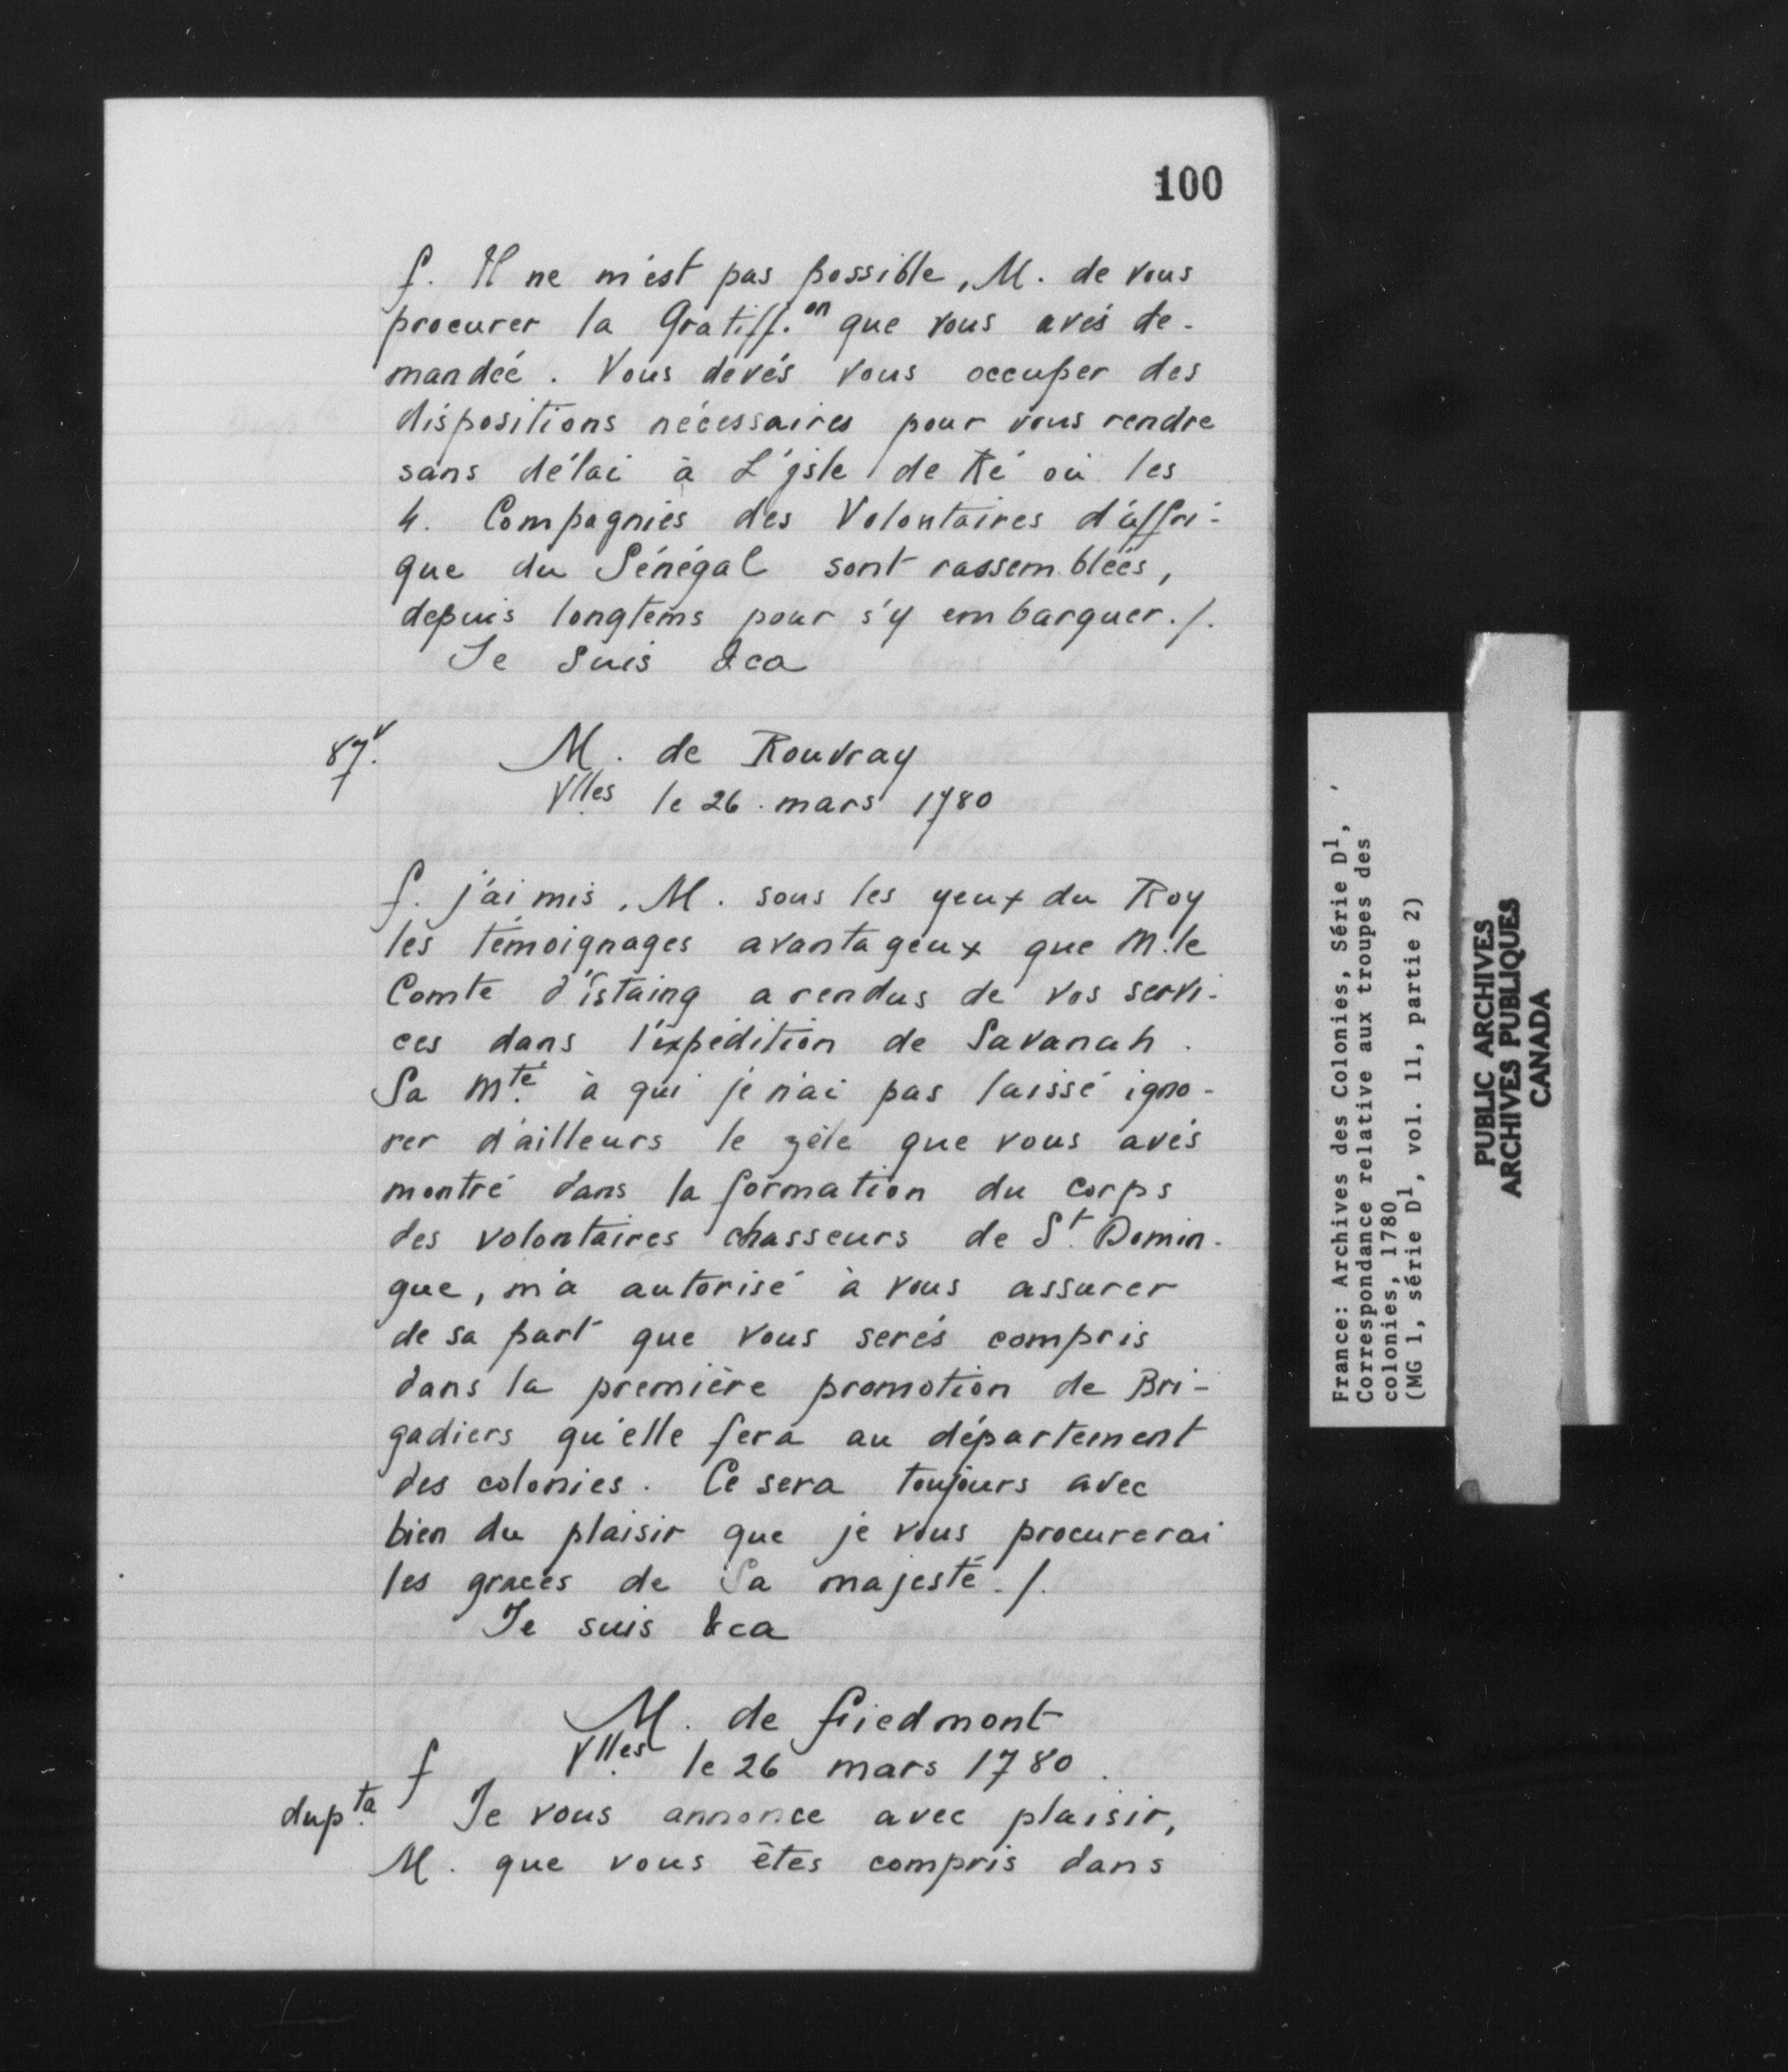 100
f. Il ne m'est pas possible, M. de vous
procurer la Gratiff.on que vous avés de-
mandée. Vous devés vous occuper des
dispositions nécessaires pour vous rendre
sans délai à L'isle de Ré où les
4. Compagnies des Volontaires d'affri-
que du Sénégal sont rassemblées,
depuis longtems pour s'y embarquer./.
Je suis &ca
87v.
M. de Rouvray
Vlles le 26. mars 1780
f. j'ai mis, M. sous les yeux du Roy
les témoignages avantageux que M. le
Comte d'Estaing a rendus de vos servi-
ces dans l'expédition de Savanah.
Sa Mté à qui je n'ai pas laissé igno-
rer d'ailleurs le zèle que vous avés
montré dans la formation du corps
des volontaires chasseurs de St. Domin-
gue, m'a autorisé à vous assurer
de sa part que vous serés compris
dans la première promotion de Bri-
gadiers qu'elle fera au département
des colonies. Ce sera toujours avec
bien du plaisir que je vous procurerai
les graces de Sa majesté./.
Je suis &ca
M. de fiedmont
f Vlles le 26 mars 1780.
dup.ta Je vous annonce avec plaisir,
M. que vous êtes compris dans
France: Archives des Colonies, Série D1,
Correspondance relative aux troupes des
colonies, 1780
(MG 1, série D1, vol. 11, partie 2)
PUBLIC ARCHIVES
ARCHIVES PUBLIQUES
CANADA